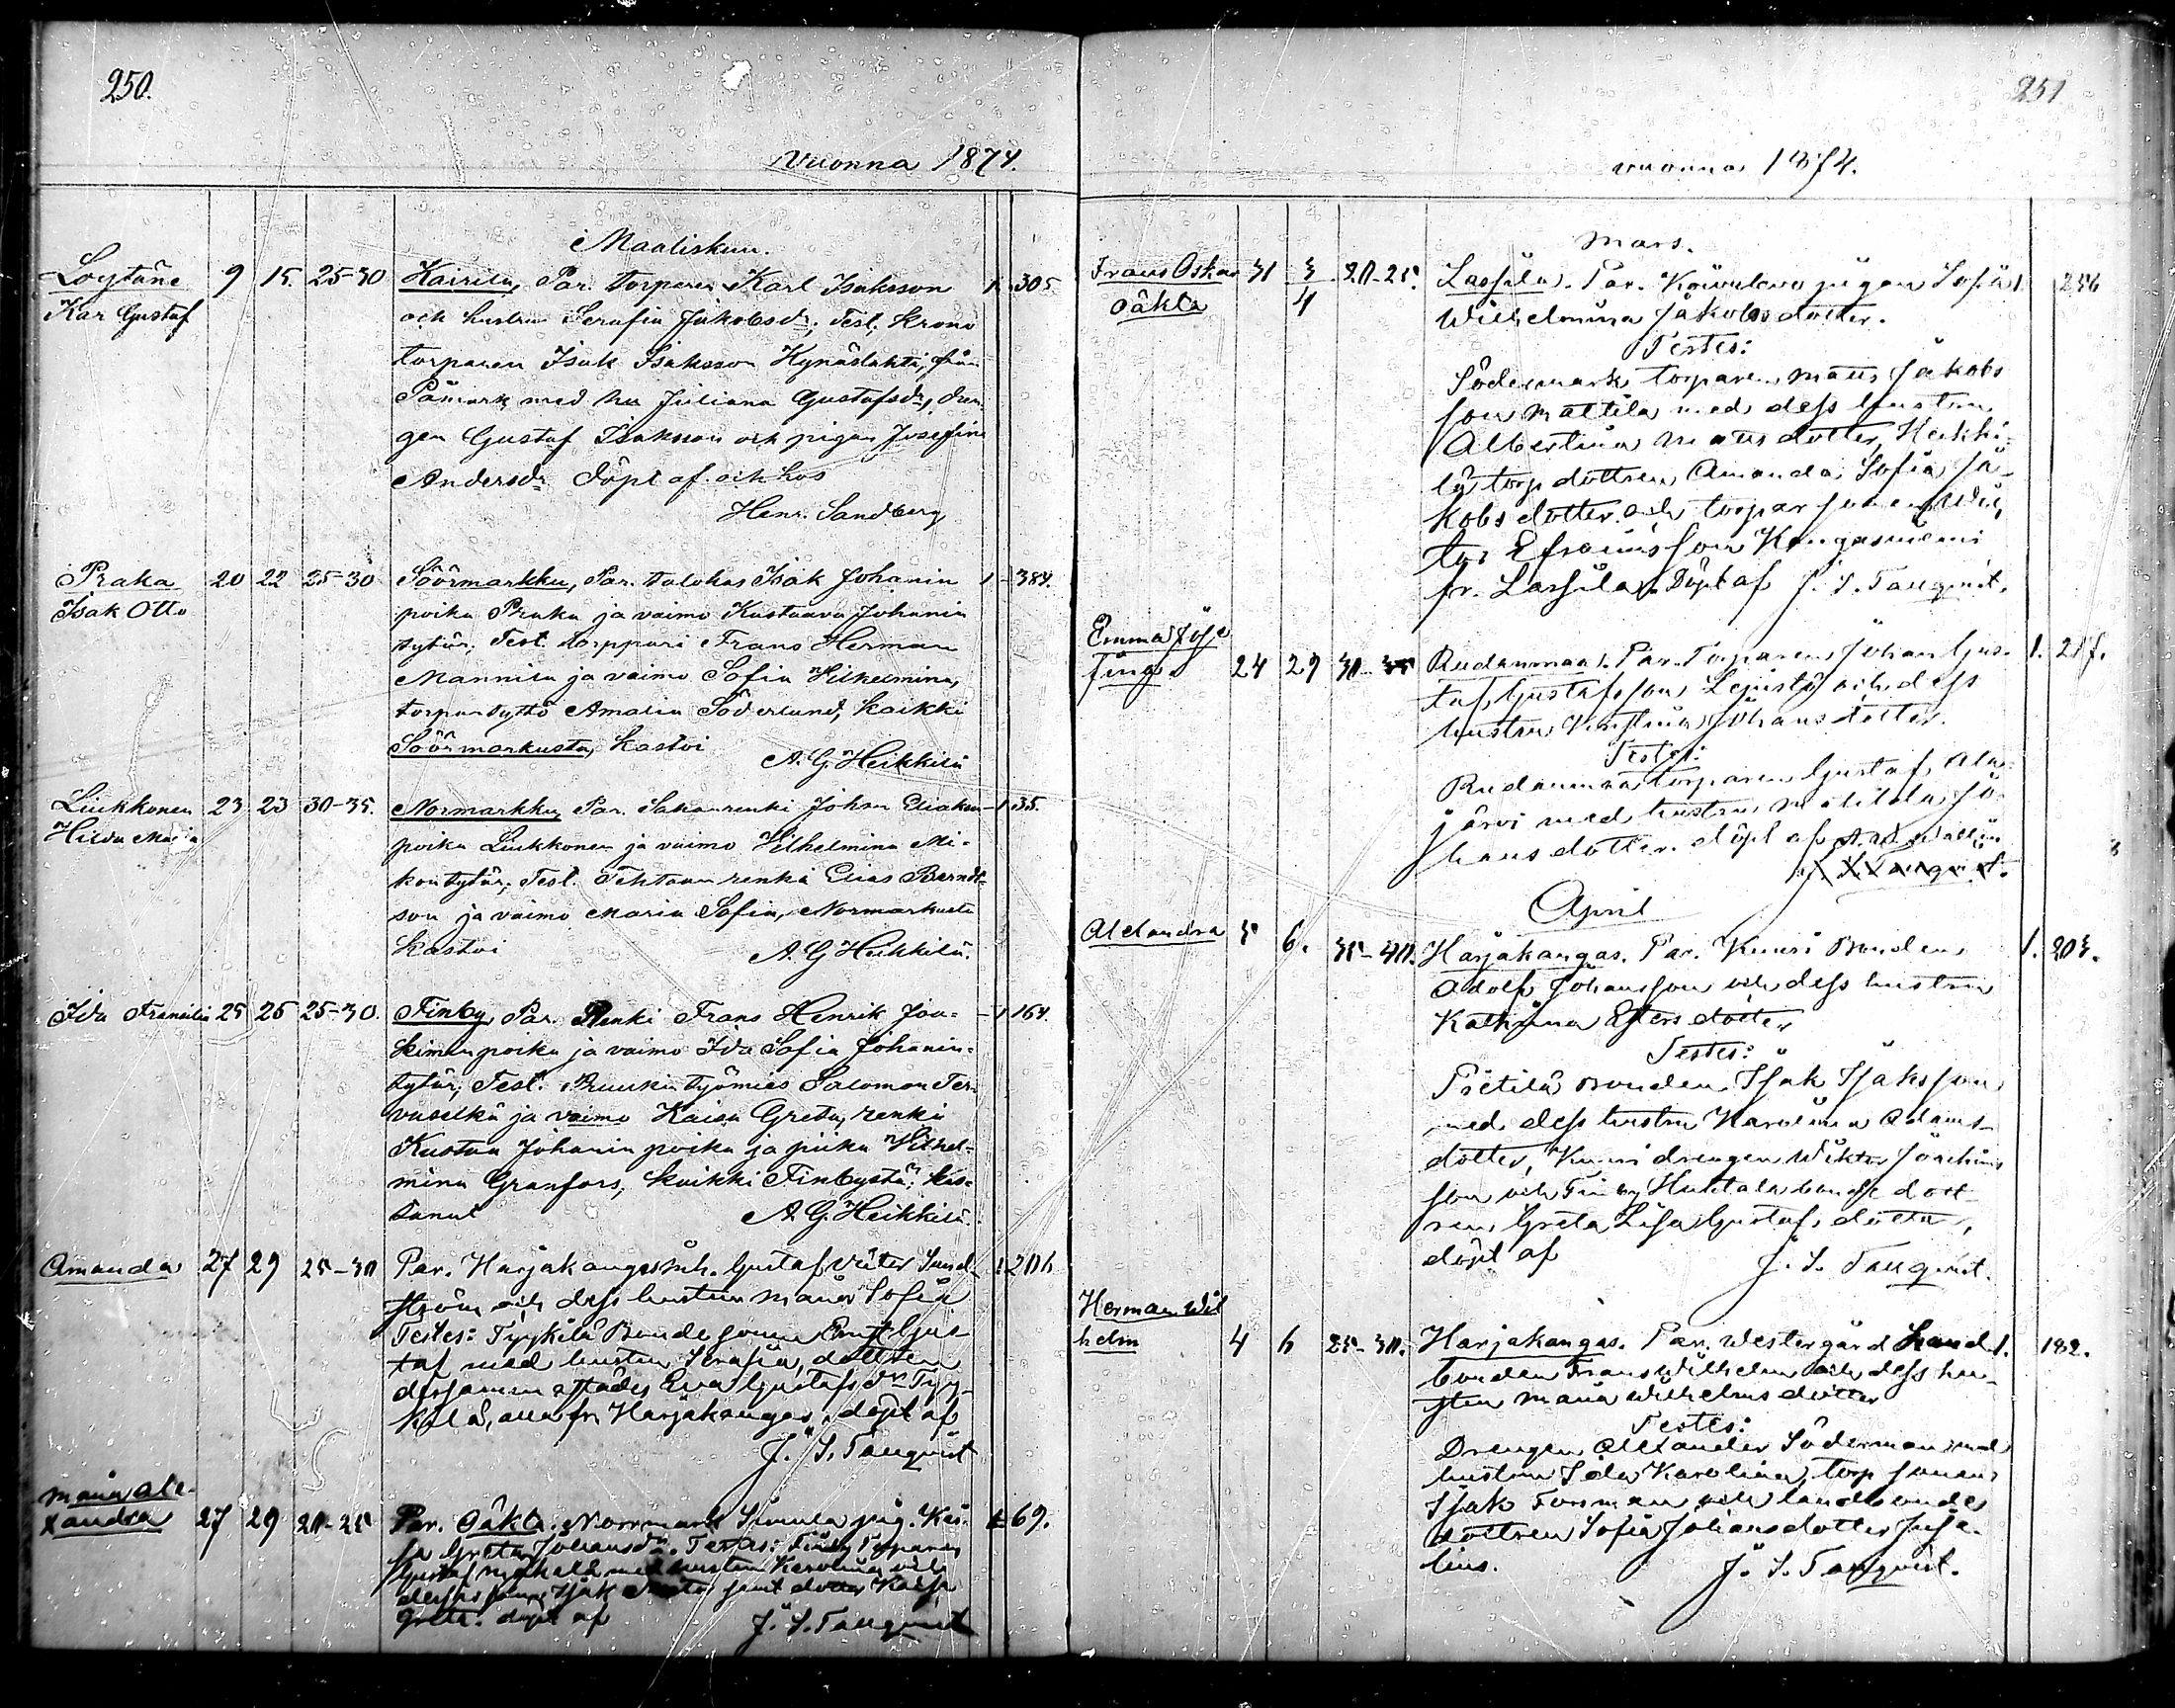 250.
Vuonna 1874.
Maaliskuu.
Loytäne 9 15 25-30 Kairila, Par. torparen Karl Isaksson 1. 305
Kar Gustaf och hustru Serafia Jakobsdr; Test. Krono
torparen Isak Isaksson Kynäslahti, från
Påmark med hu Juliana Gustafsdr, drän
gen Gustaf Isaksson och pigan Josefina
Andersdr Döpt af och hos
Henr. Sandberg
Praka 20 22 25-30 Söörmarkku, Par. talokas Isak Johanin 1 384.
Isak Otto poika Praka ja vaimo Kustaava Johanin
tytär, Test. torppari Frans Herman
Mannila ja vaimo Sofia Vilhelmina,
torpantyttö Amalia Söderlund, kaikki
Söörmarkusta, kastoi
A. G. Heikkilä
Liukkonen 23 23 30-35. Normarkku, Par. Sahanrenki Johan Eliaksen 1 35.
Hilda Maria poika Liukkonen ja vaimo Vilhelmina Mi-
kontytär, Test. Tehtaan renki Elias Berndt-
son ja vaimo Maria Sofia, Normarkusta
kastoi A. G. Heikkilä.
Ida Fransiila 25 26 25-30. Finby, Par. Renki Frans Henrik Joa- 1 164.
kiminpoika ja vaimo Ida Sofia Johanin-
tytär, Test. Ruukin työmies Salomon Ter-
vaselkä ja vaimo Kaisa Greta, renki
Kustaa Johanin poika ja piika Vilhel-
mina Granfors, kaikki Finbystä; kas-
tanut A. G. Heikkilä.
Amanda 27 29 25-30 Par. Harjakangas inh. Gustaf Sund- 1 206
ström och dess hustru Maria Sofia
Testes: Tyykilä Bondesonen Ernst Gus-
taf med hustru Serafia, dottren
dersammastädes Eva Gustafsdr Tyy-
kilä, alla fr. Harjakangas, döpt af
J. S. Tanqvist
Maria Ale-
xandra 27 29 20-25 Par. Oäkta. Norrmark Simula pig. Kai- 1 69.
sa Greta Johansdr. Testes: Finby Torparen
Gustaf med hustru Karolina och
Isak samt dotter Kaisa
Greta. döpt af J. S. Tanqvist
251
vuonna 1874.
Mars.
Frans Oskar 31 3/4 20-25. Lassila. Par. pigan Sofia 1. 256
Oäkta Wilhelmina Jakobsdotter.
Testes:
Södermark torparen Matts Jakobs
son Mattila med dess hustru
Albertina Mattsdotter, Heikki-
lä torp dottren Amanda Sofia Ja-
kobsdotter och torparsonen Wik-
tor Efraimsson Kangasniemi
fr. Lassila. Döpt af J. S. Tanqvist.
Emma Jose
fina 24 29 30-35 Rudanmaa. Par. Torparen Johan Gus- 1. 217.
taf Gustafsson Lepistö och dess
hustru Johansdotter.
Testes:
Rudanmaa torparen Gustaf Ala-
järvi med hustru Matilda Jo-
hansdotter. döpt af
J. S. Tanqvist.
April
Alexandra 5 6. 35-40. Harjakangas. Par. Kunsi Bonden 1. 203.
Adolf Johansson och dess hustru
Katharina Estersdotter
Testes:
Pietilä Bonden Isak Isaksson
med dess hustru Karolina Adams-
dotter, Kunsi drengen Wiktor Joachims
son och Finby Huhtala bonde dott
ren Greta Lisa Gustafsdotter,
döpt af J. S. Tanqvist.
Herman Wil
helm 4 6 25-30. Harjakangas. Par. Westergård Land 1. 182.
bonden Frans Wilhelm och dess hu-
stru Maria Wilhelmsdotter
Testes:
Drengen Alexander Söderman med
hustru Ida Karolina, torp sonen
Isak Forsman och landbonde
dottren Sofia Johansdotter Juse-
lius. J. S. Tanqvist.